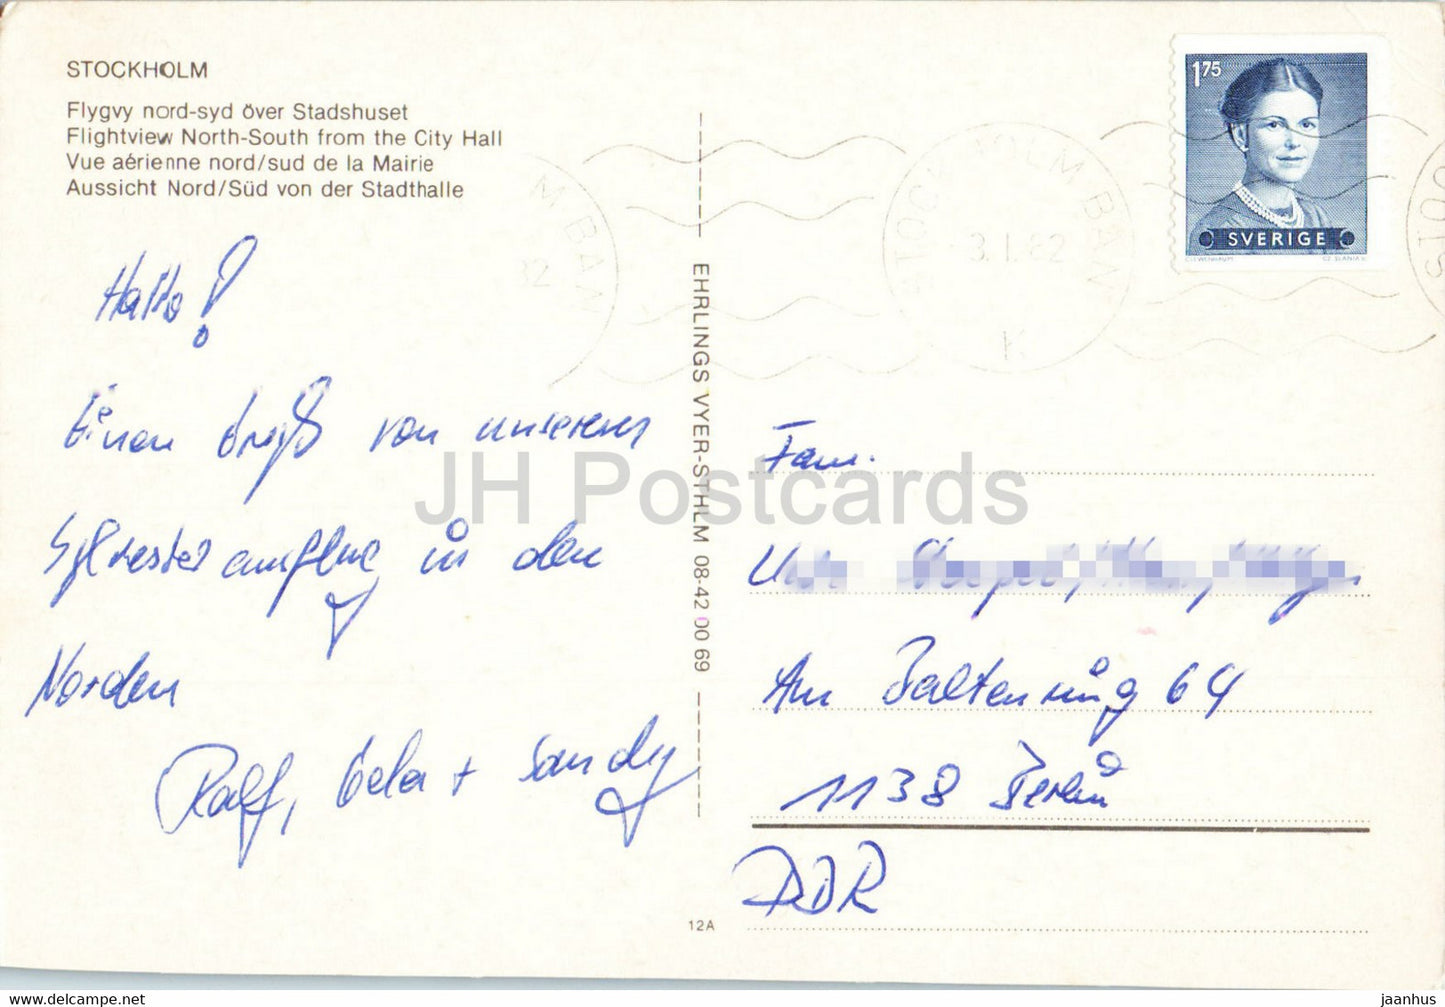 STOCKHOLM
Flygvy nord-syd över Stadshuset
Flightview North-South from the City Hall
Vue aérienne nord/sud de la Mairie
Aussicht Nord/Süd von der Stadthalle
Hallo!
Einen Gruß von unserem
Sylvesterausflug in den
Norden
Ralf, Gela + Sandy
EHRLINGS VYER-STHLM 08-42 00 69
12A
175
SVERIGE
CZ. SLANIA SC
STOCKHOLM BAN
3.1.82
K
M BAN
82
STOC
Fam.
Am 64
1138 Berlin
DDR
JH Postcards
www.delcampe.net
jaanhus